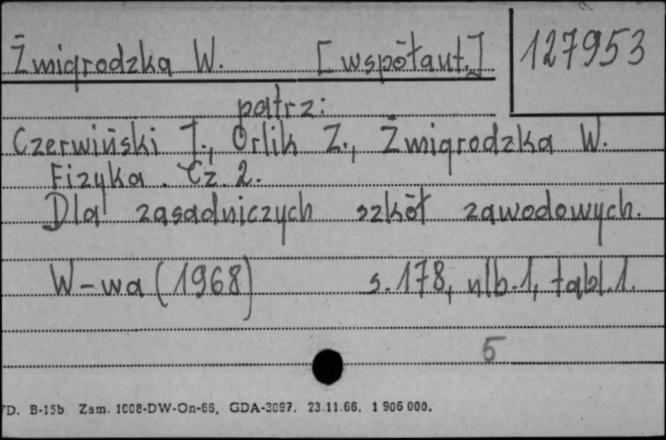 Żmigrodzka W. [współaut.] 127953
patrz:
Czerwiński J., Orlik Z., Żmigrodzka W.
Fizyka. Cz 2.
Dla zasadniczych szkół zawodowych.
W-wa (1968) s. 178, nlb. 1, tabl. 1.
5
D. B-15b. Zam. 1608-DW-On-66. GDA-3097. 23.11.66. 1 906 000.